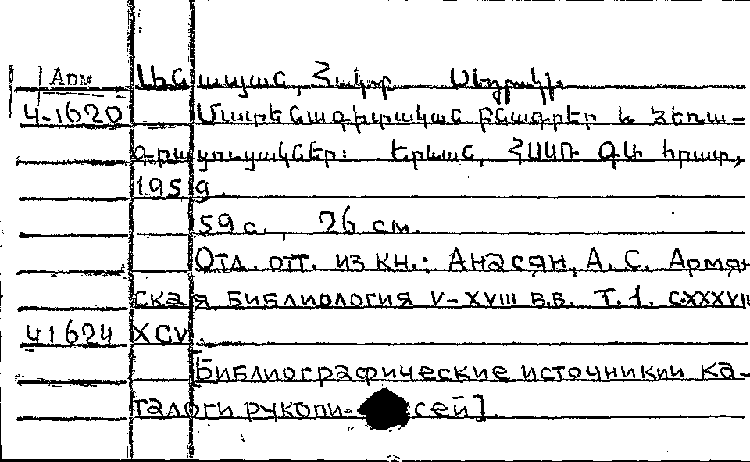 Арм Անասյան, Հակոբ Սեդրակի
4-1620 Մատենագիտական բնագրեր և ձեռա-
գրացուցակներ: Երևան, ՀՍՍՌ ԳԱ հրատ,
1959.
59 с., 26 см.
Отд. отт. из кн.: Анасян, А. С. Армян
ская библиология V-XVIII в.в. Т.1. с XXXVIII
41624 XCV.
[Библиографические источники и ка-
талоги рукопи-сей].